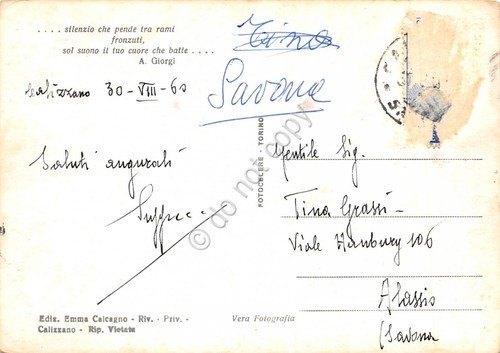 . . . . silenzio che pende tra rami
fronzuti,
sol suono il tuo cuore che batte . . . .
A. Giorgi
Calizzano 30-VIII-60
Saluti augurali
Savona
FOTOCELERE - TORINO
do not copy
Gentile Sig.
Tina Grassi
Viale Hanbury 106
Alassio
(Savona
Ediz. Emma Calcagno - Riv. - Priv. -
Calizzano - Rip. Vietata
Vera Fotografia